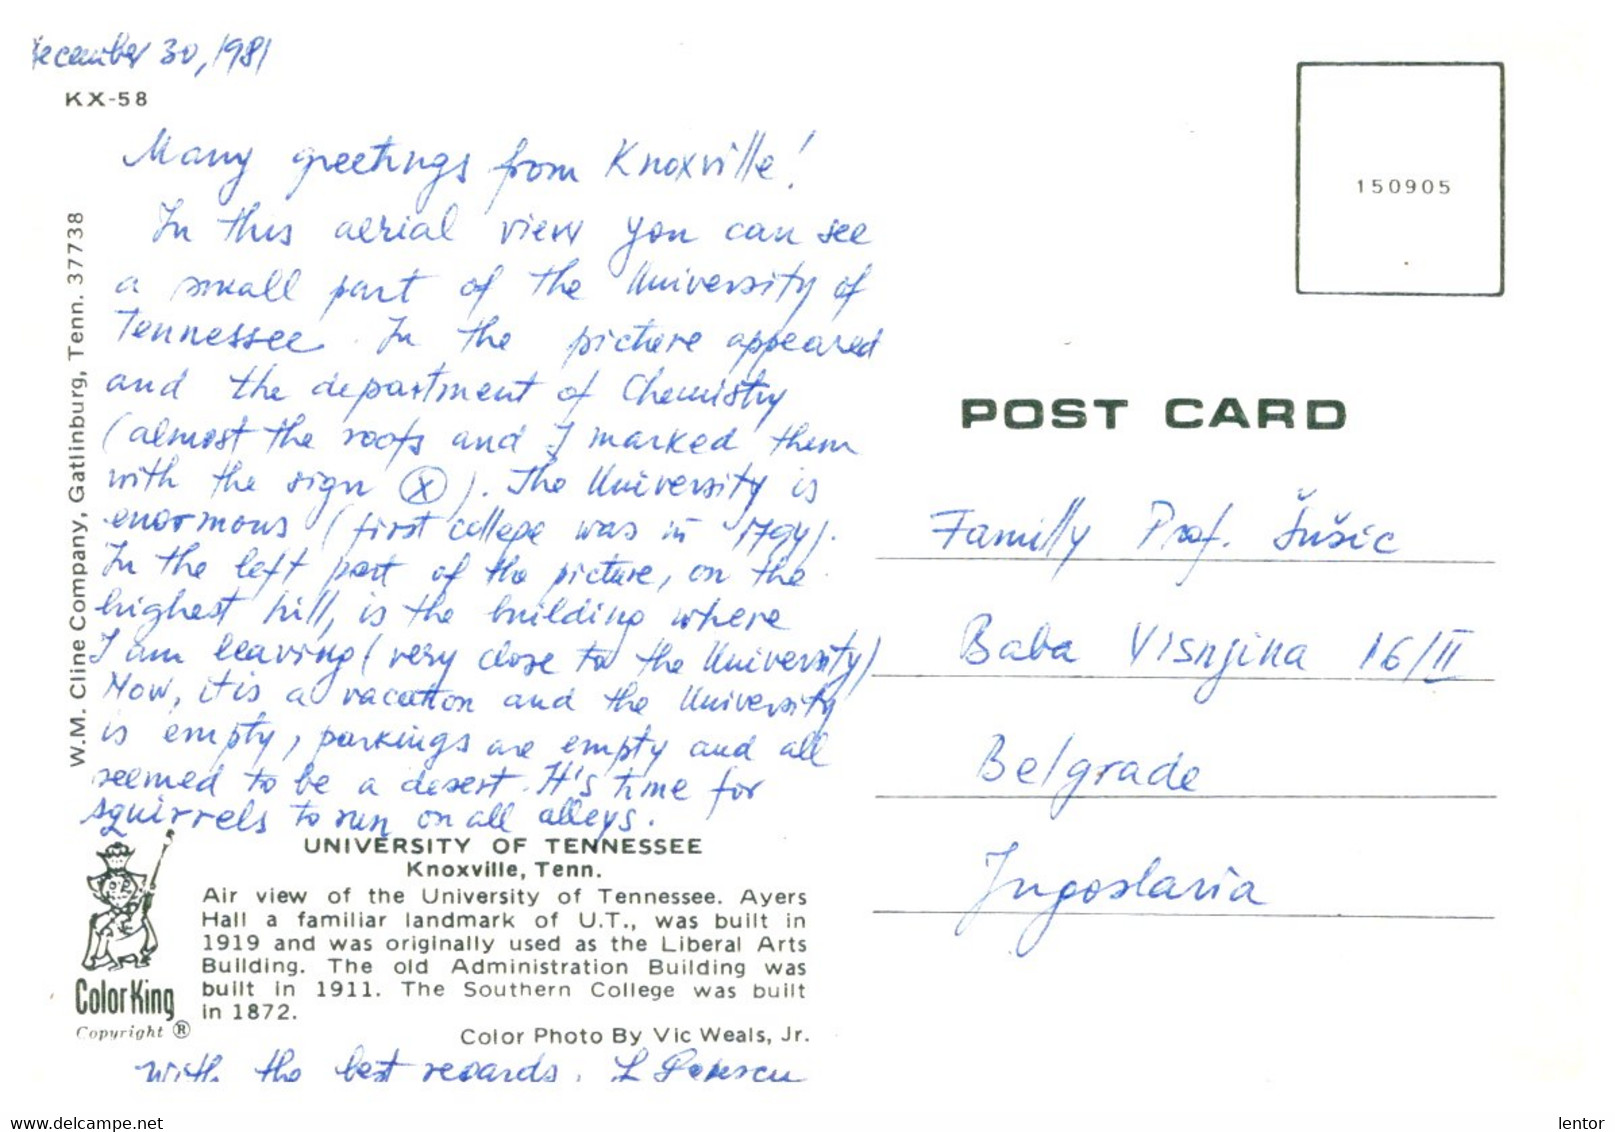 December 30, 1981
KX-58
Many greetings from Knoxville!
In this aerial view you can see
a small part of the University of
Tennessee. In the picture appeared
and the department of Chemistry
(almost the roofs and I marked them
with the sign Ⓧ). The University is
enormous (first college was in 1794).
In the left part of the picture, on the
highest hill, is the building where
I am leaving (very close to the University)
Now, it is a vacation and the University
is empty, parkings are empty and all
seemed to be a desert. It's time for
squirrels to run on all alleys.
W.M. Cline Company, Gatlinburg, Tenn. 37738
UNIVERSITY OF TENNESSEE
Knoxville, Tenn.
Air view of the University of Tennessee. Ayers
Hall a familiar landmark of U.T., was built in
1919 and was originally used as the Liberal Arts
Building. The old Administration Building was
built in 1911. The Southern College was built
in 1872.
Color Photo By Vic Weals, Jr.
ColorKing
Copyright ®
With the best regards. L
150905
POST CARD
Familly Prof. Šušic
Baba Visnjina 16/II
Belgrade
Jugoslavia
delcampe.net
lentor